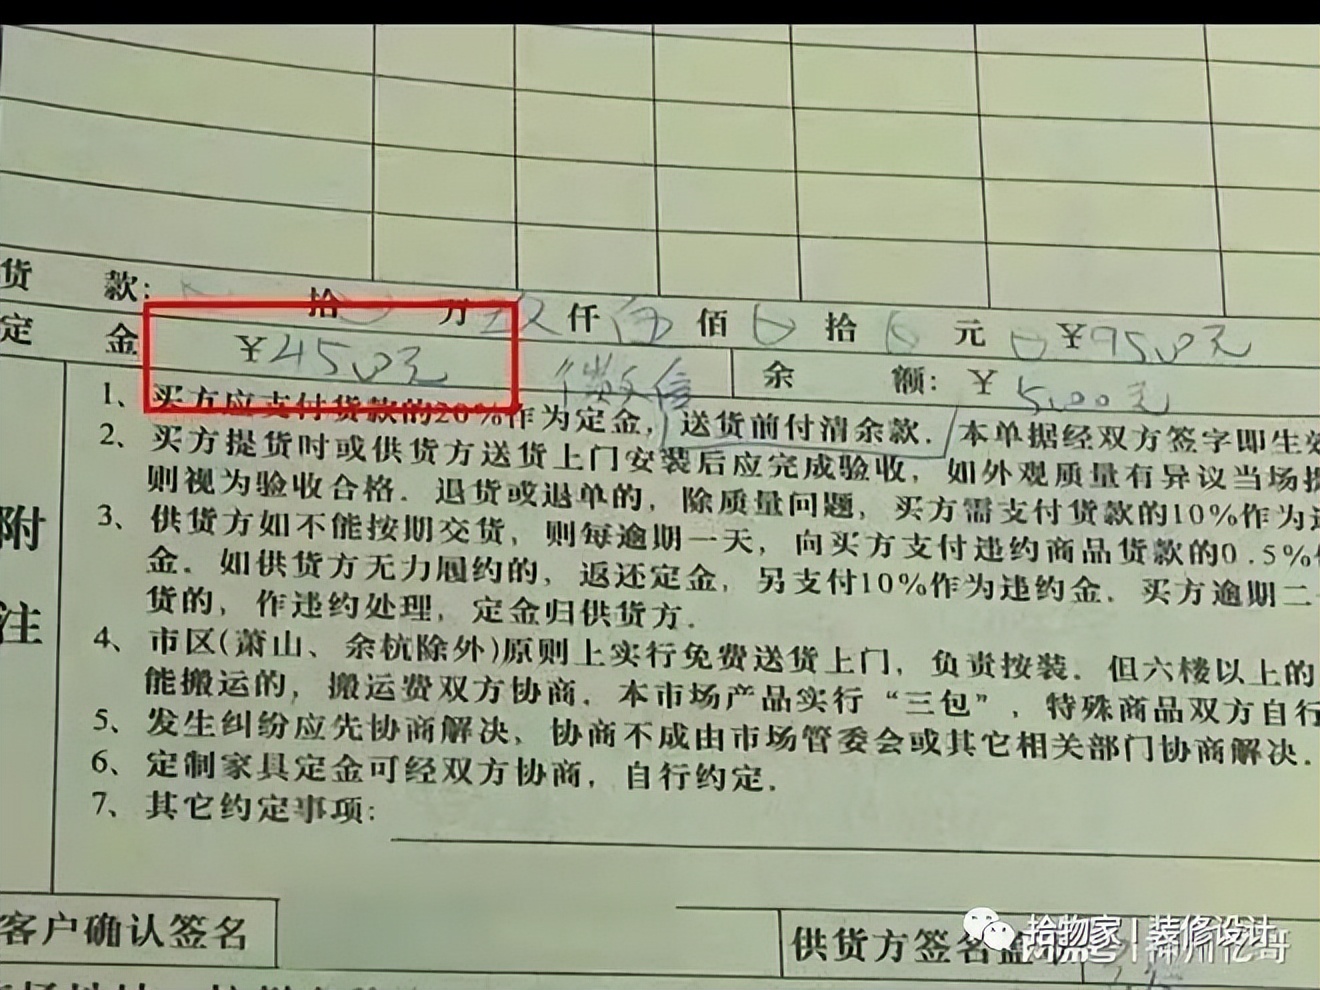 货 款: 拾 万 玖 仟 伍 佰 0 拾 0 元 0 ¥9500元
定 金 ¥4500元 微信 余 额: ¥ 5000元
附注
1、买方应支付货款的20%作为定金, 送货前付清余款. 本单据经双方签字即生效
2、买方提货时或供货方送货上门安装后应完成验收, 如外观质量有异议当场提
则视为验收合格. 退货或退单的, 除质量问题, 买方需支付货款的10%作为违
3、供货方如不能按期交货, 则每逾期一天, 向买方支付违约商品货款的0.5%
金. 如供货方无力履约的, 返还定金, 另支付10%作为违约金. 买方逾期二
货的, 作违约处理, 定金归供货方.
4、市区(萧山、余杭除外)原则上实行免费送货上门, 负责按装. 但六楼以上的
能搬运的, 搬运费双方协商. 本市场产品实行“三包”, 特殊商品双方自行
5、发生纠纷应先协商解决, 协商不成由市场管委会或其它相关部门协商解决.
6、定制家具定金可经双方协商, 自行约定.
7、其它约定事项:
客户确认签名
供货方签名盖
拾物家 | 装修设计